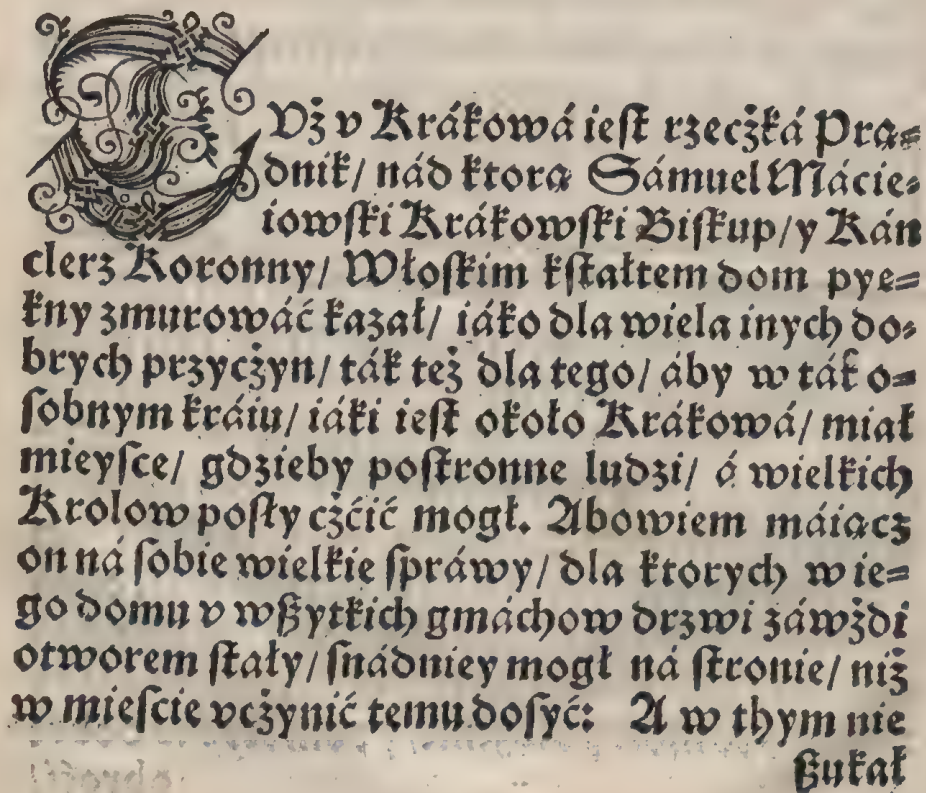 TVż v Krákowá ieſt rzecżká Prą=
dnik/ nád ktorą Sámuel Mácie=
iowſki Krákowſki Biſkup/ y Kán
clerz Koronny/ Włoſkim kſtałtem dom pye=
kny zmurowáć kazał/ iáko dla wiela inych do=
brych przycżyn/ ták też dla tego/ áby w ták o=
ſobnym kráiu/ iáki ieſt około Krákowá/ miał
mieyſce/ gdzieby poſtronne ludzi/ á wielkich
Krolow poſły cżćić mogł. Abowiem máiącz
on ná ſobie wielkie ſpráwy/ dla ktorych w ie=
go domu v wßytkich gmáchow drzwi záwżdi
otworem ſtały/ ſnádniey mogł ná ſtronie/ niż
w mieſcie vcżynić temu doſyć: A w thym nie
ßukał